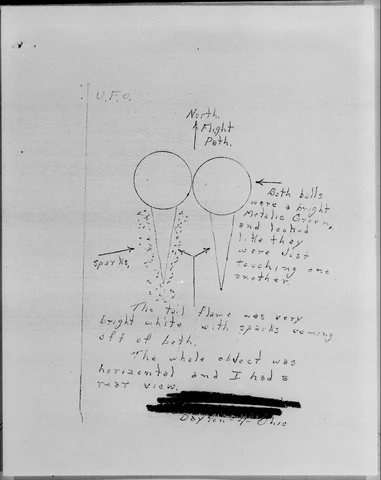 U.F.O.
North.
Flight
Path.
Both balls
were a bright
Metalic Green,
and looked
like they
were Just
touching one
another.
Sparks.
The tail flame was very
bright white with sparks coming
off of both.
The whole object was
horizontal and I had a
rear view.
Dayton-4-Ohio